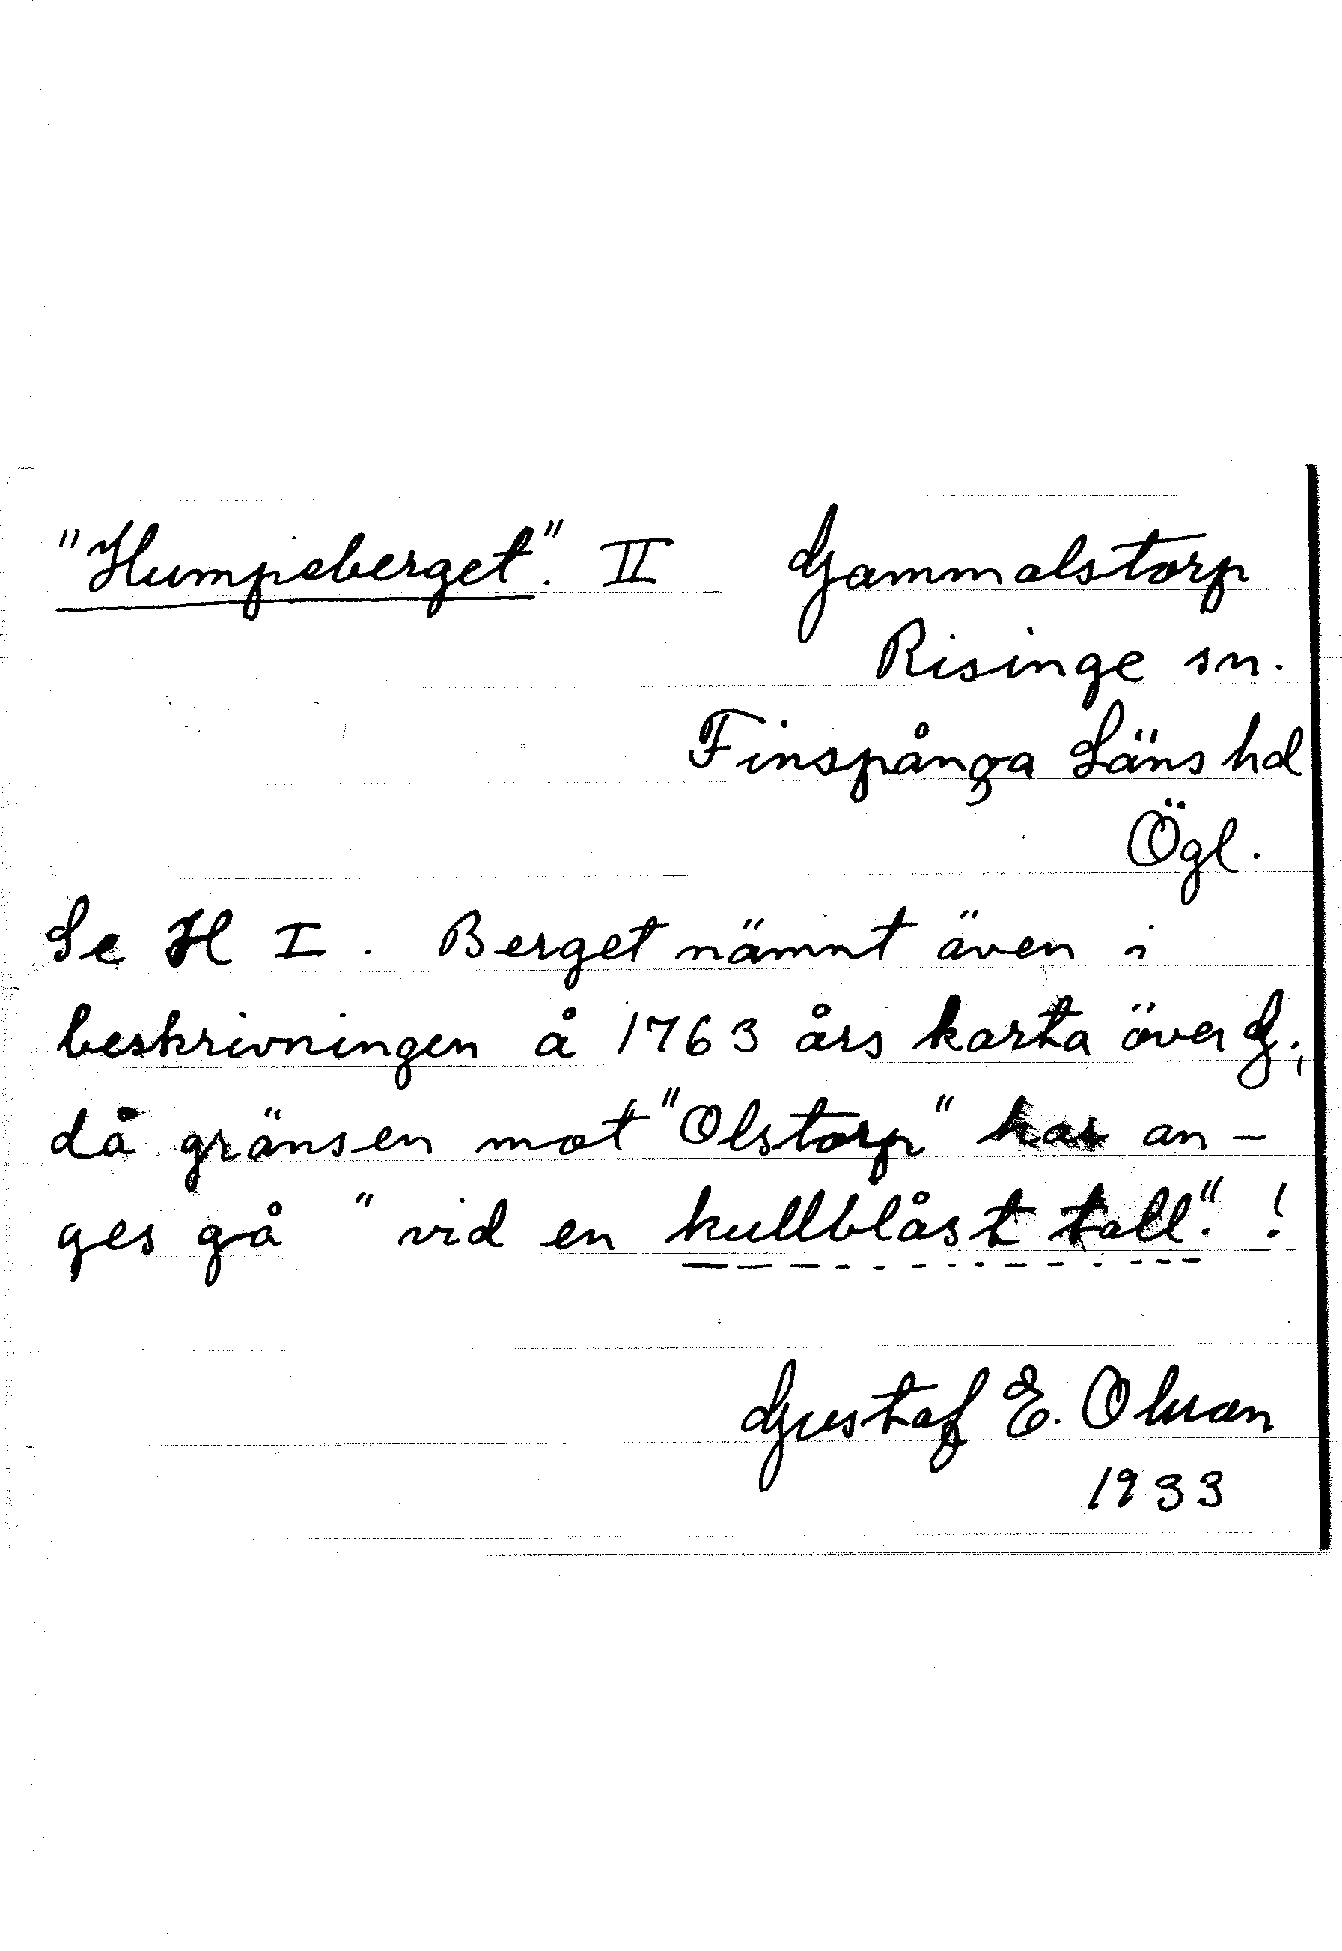 "Humpeberget". II Gammalstorp
Risinge sn.
Finspånga Läns hd
Ögl.
Se H I. Berget nämnt även i
beskrivningen å 1763 års karta över G.,
då gränsen mot "Olstorp" har an-
ges gå "vid en kullblåst tall". !
Gustaf E. Olsson
1933